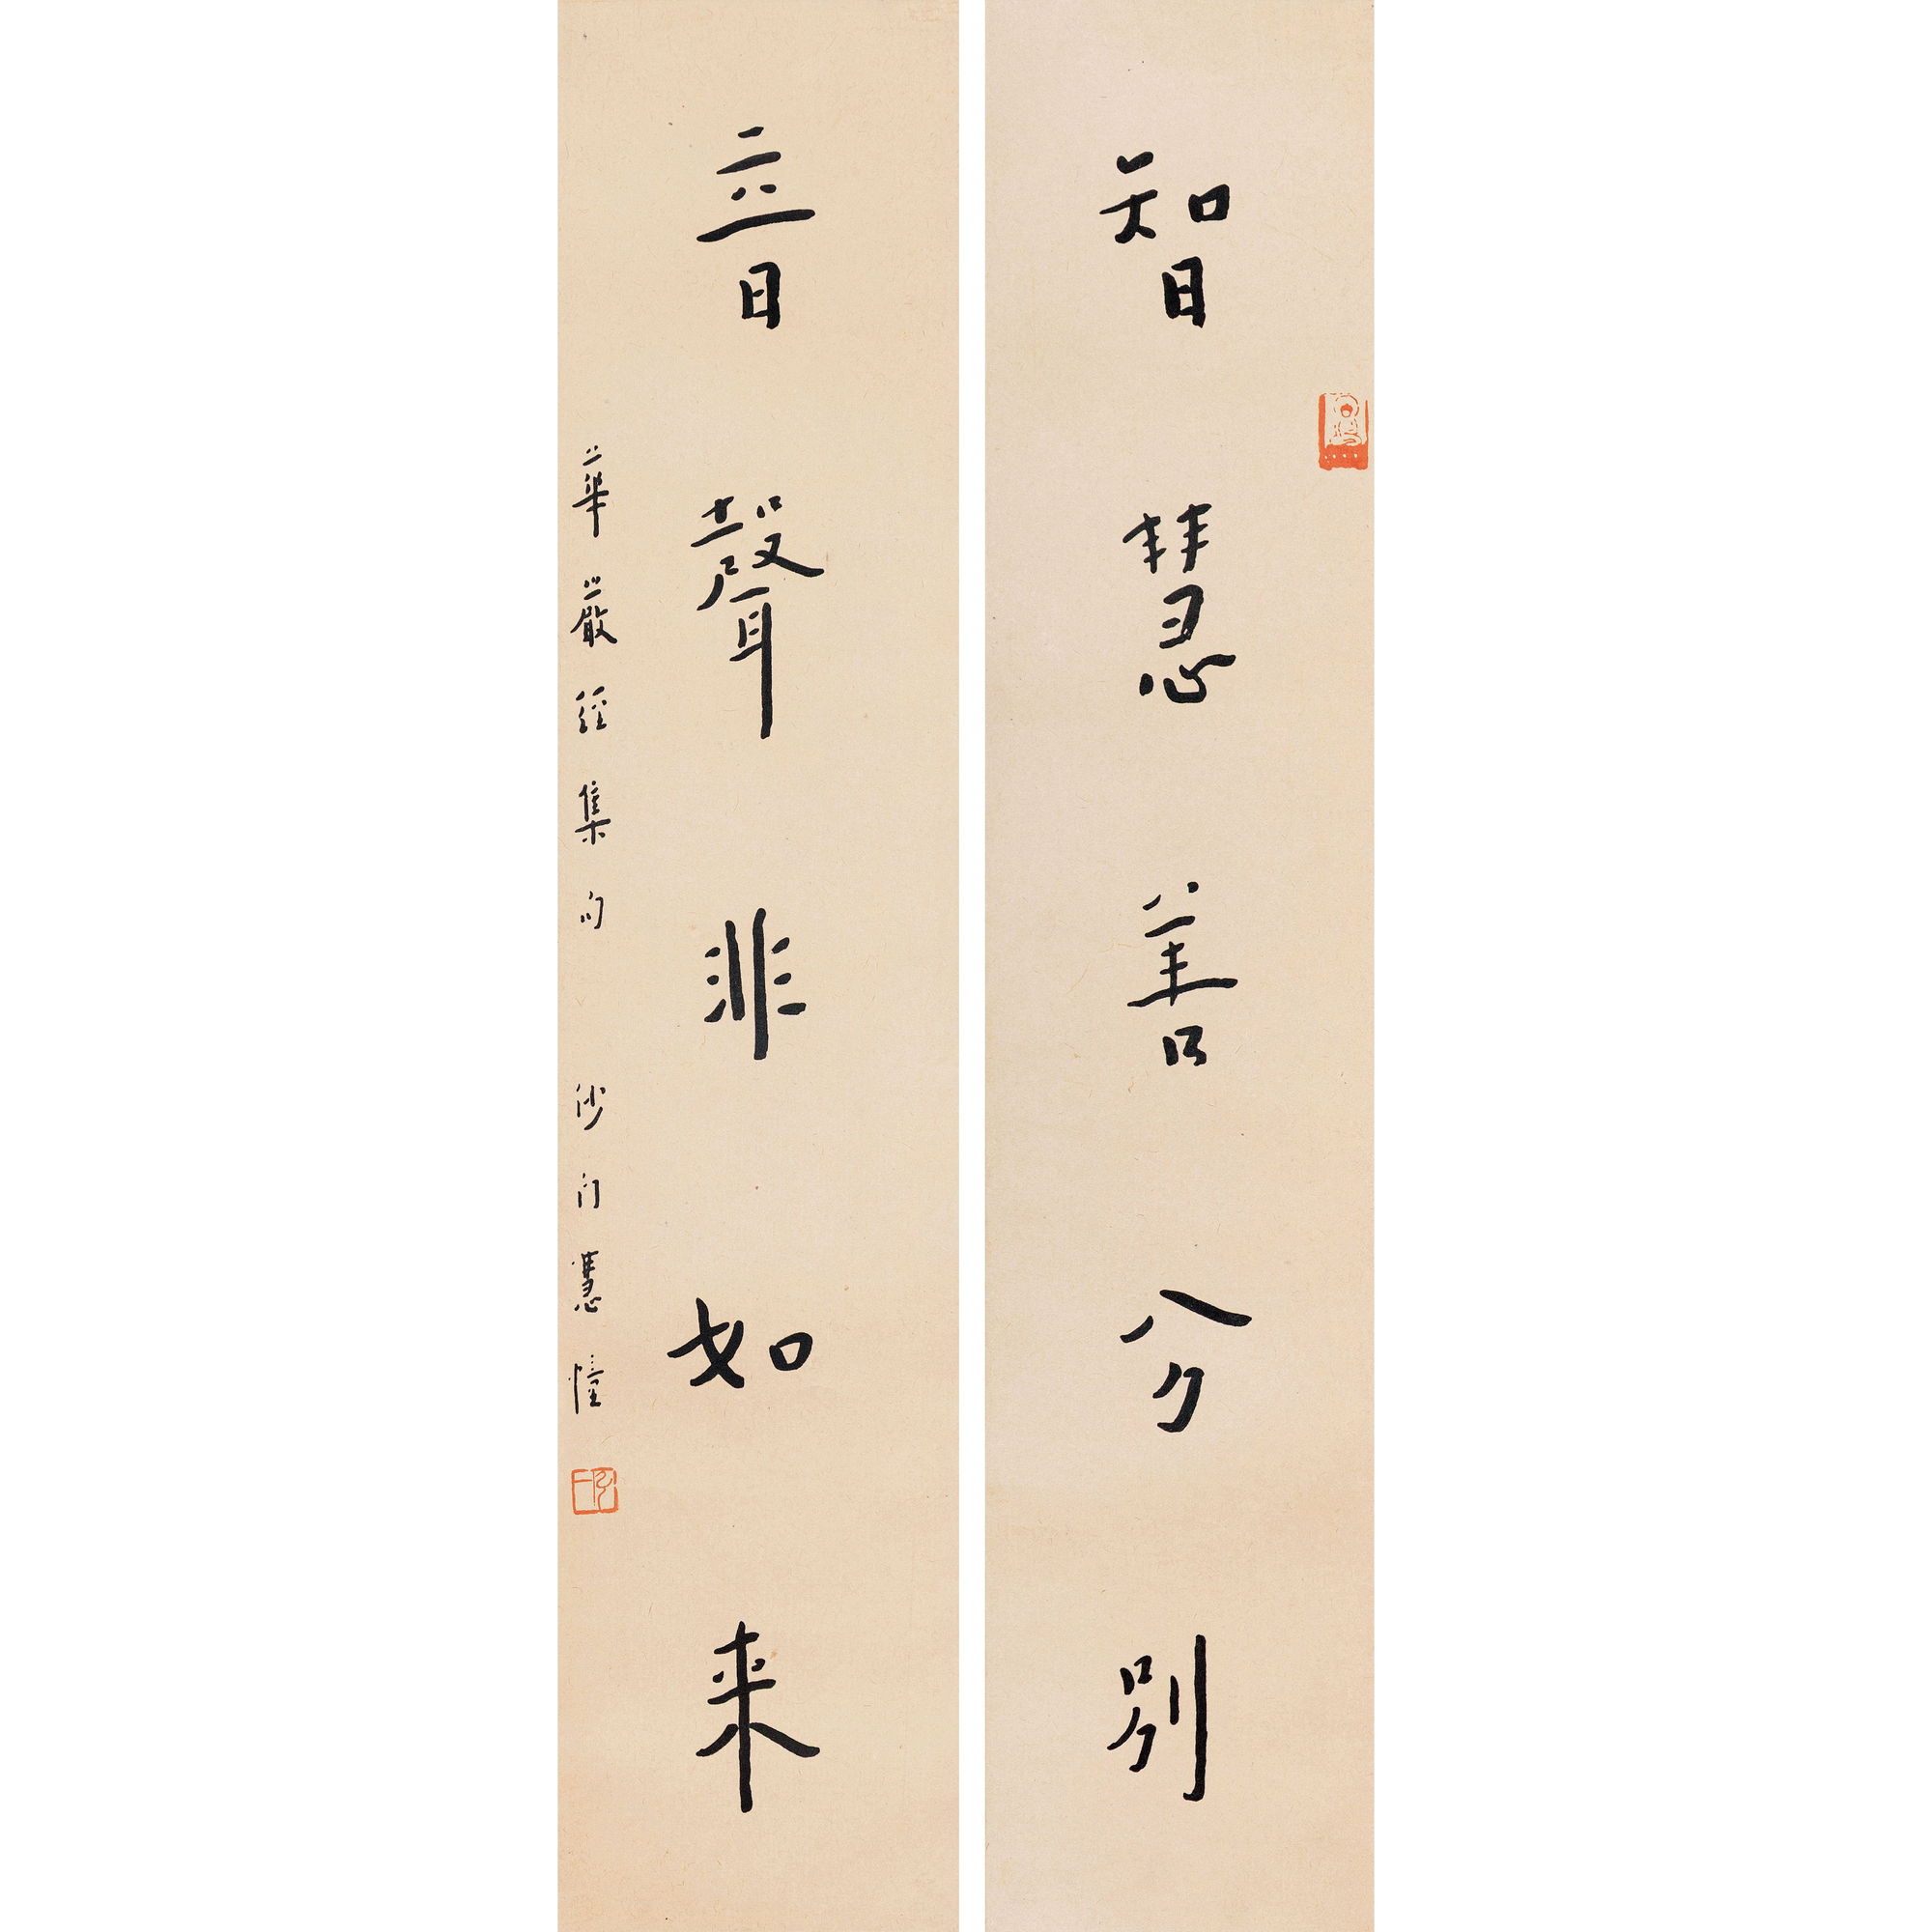 智慧善分別
音聲非如来
華嚴經集句 沙门慧幢